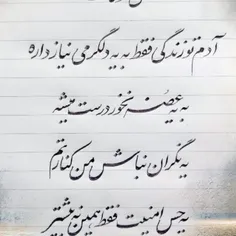 آدم تو زندگی فقط به یه دلگرمی نیاز داره
به یه غصه نخور درست میشه
یه نگران نباش من کنارتم
یه حس امنیت فقط همین نه بیشتر